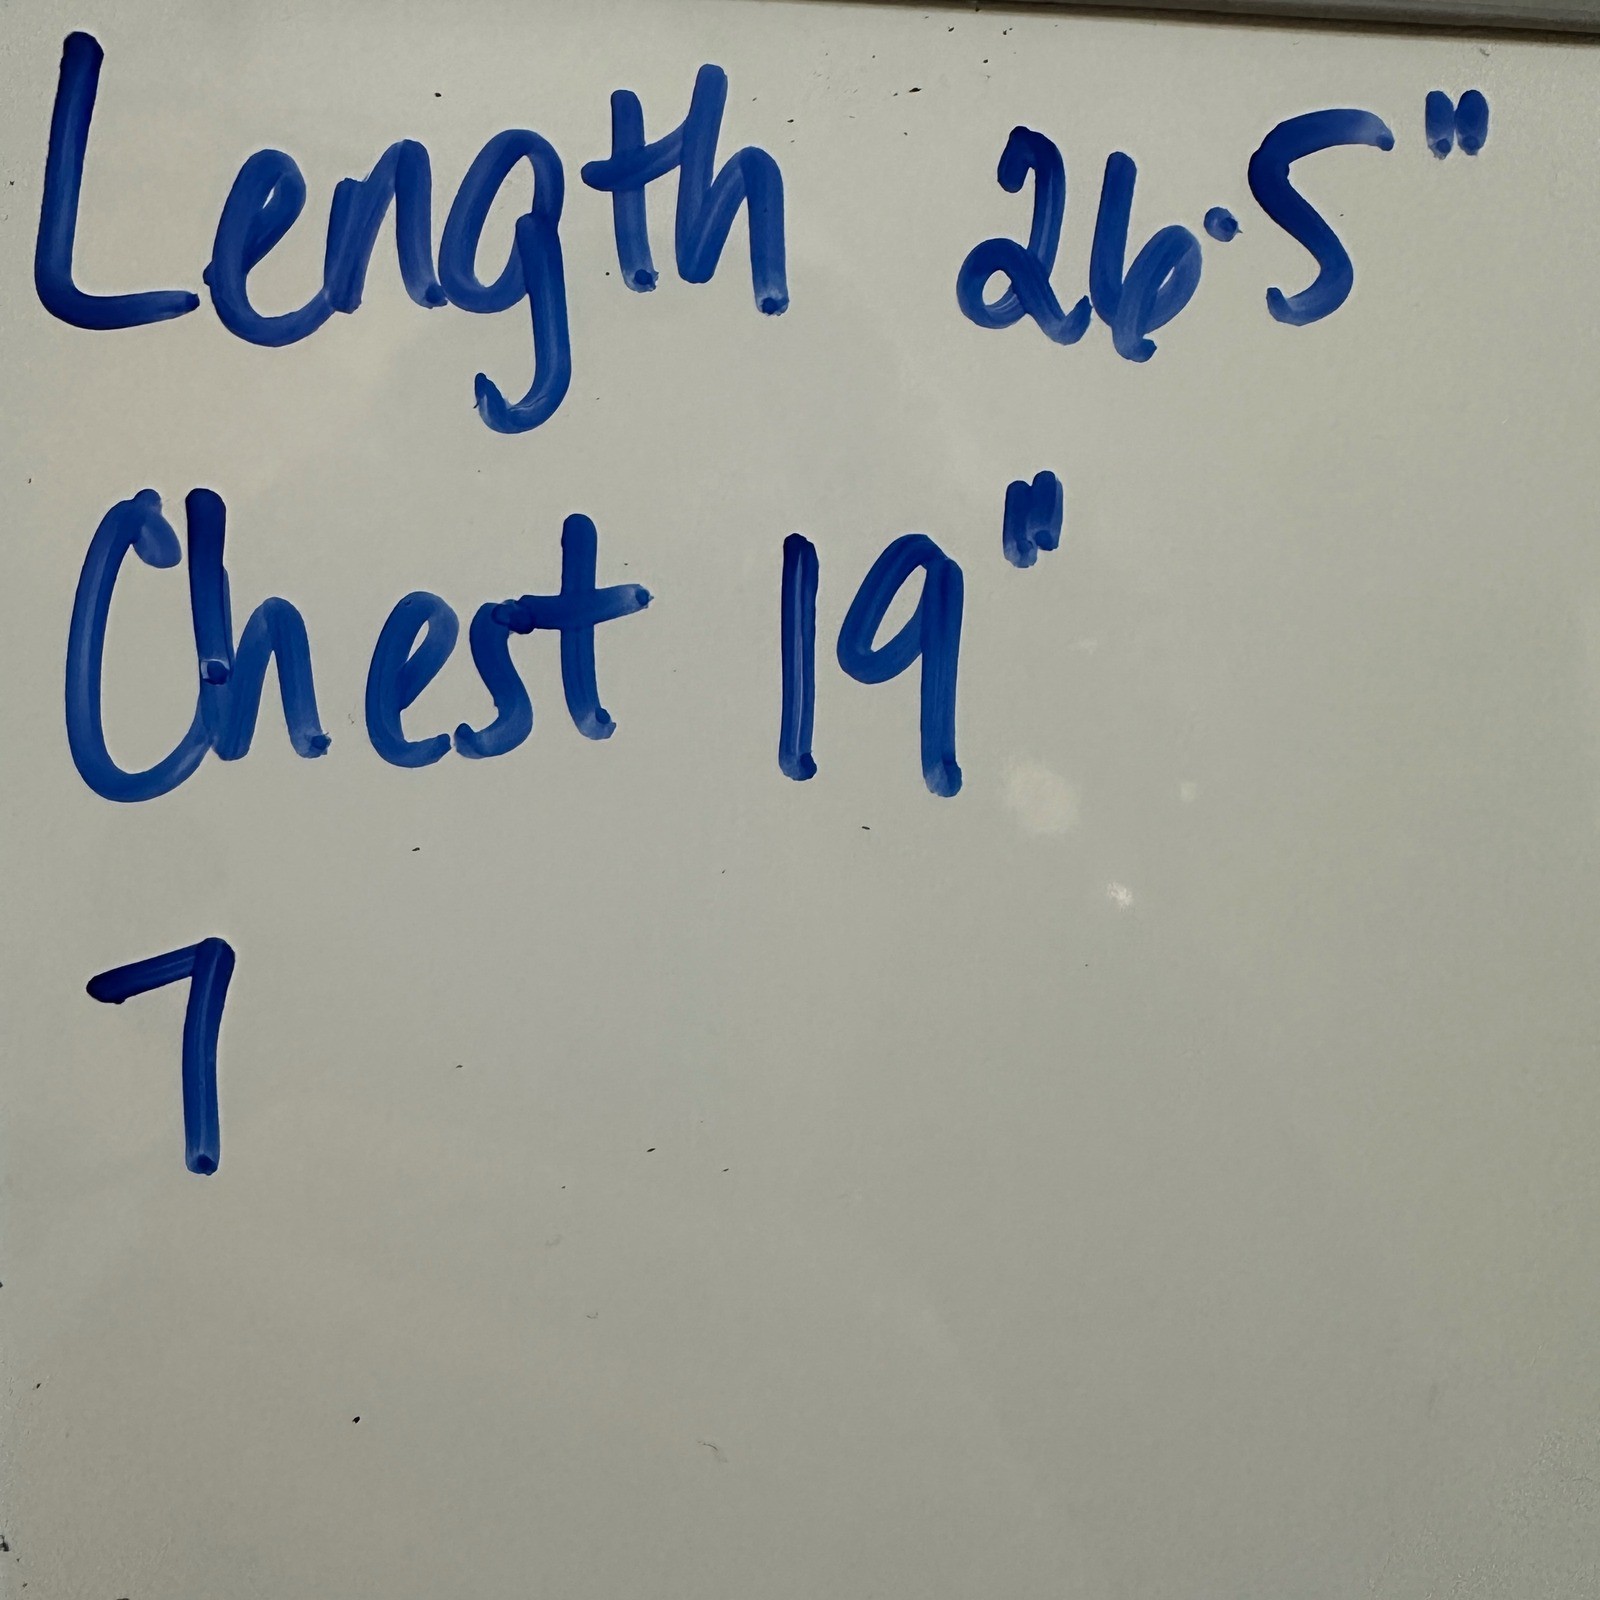 Length 26.5"
Chest 19"
7